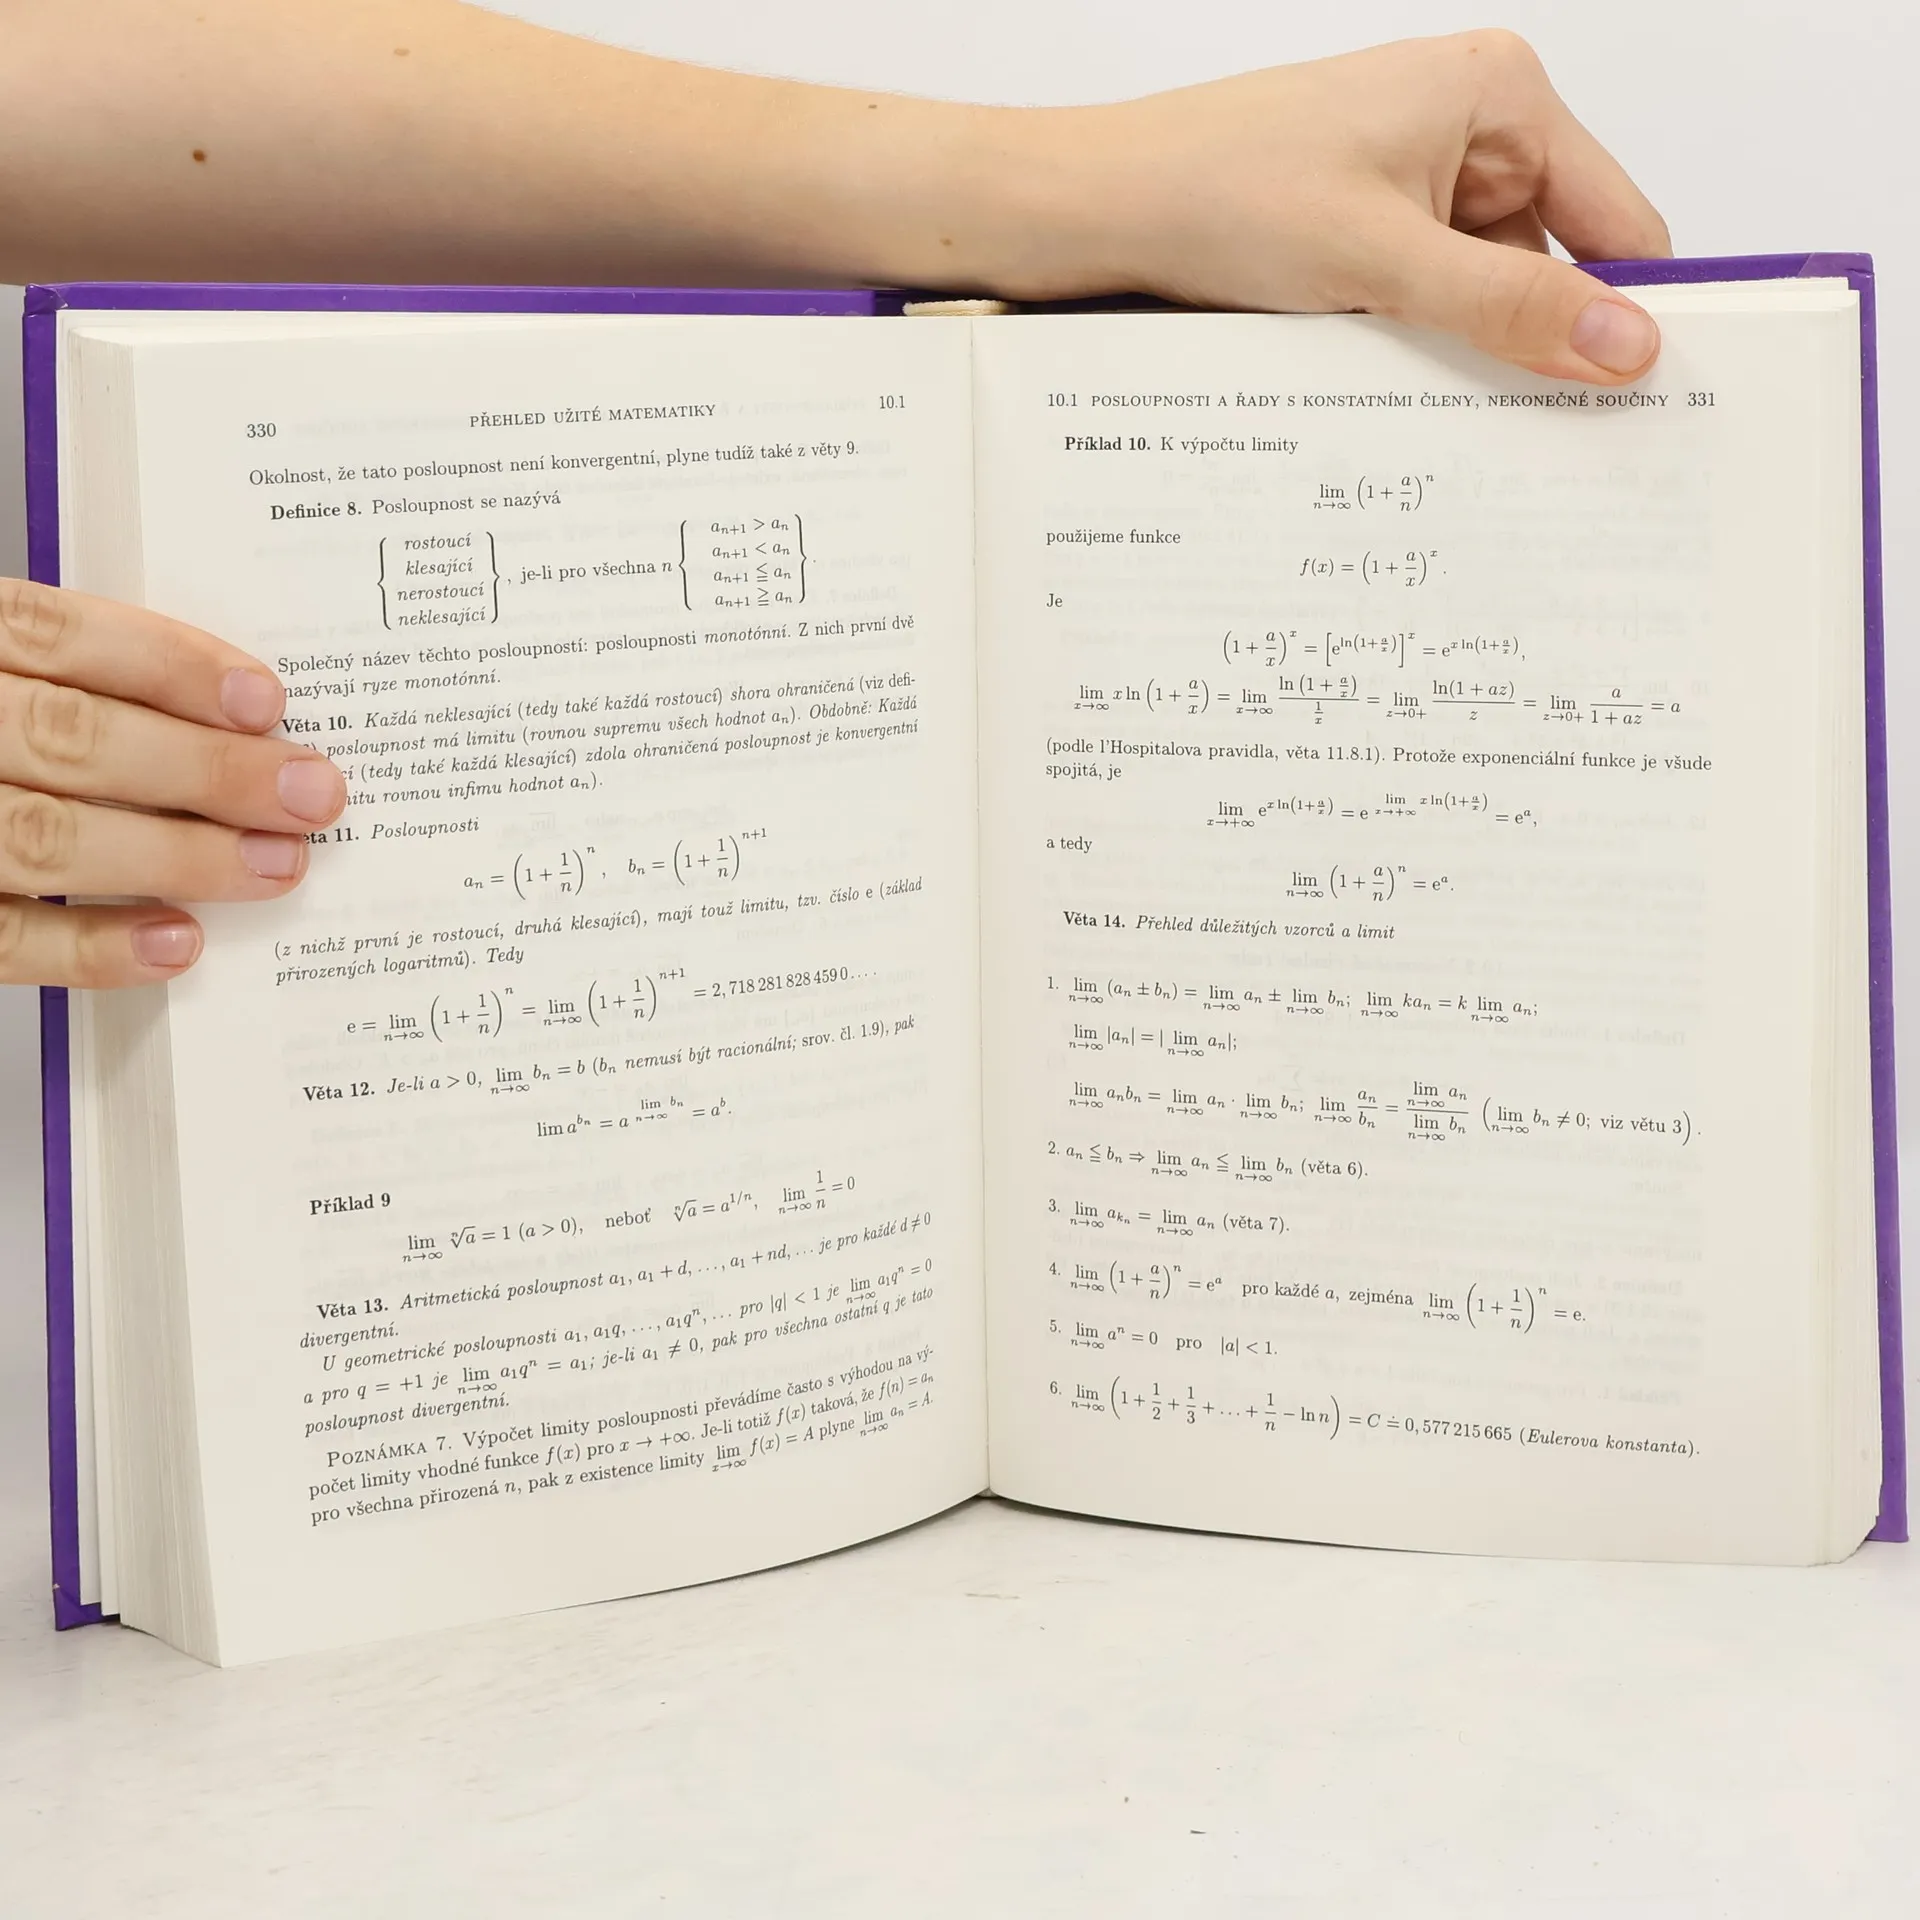 330 PŘEHLED UŽITÉ MATEMATIKY 10.1
Okolnost, že tato posloupnost není konvergentní, plyne tudíž také z věty 9.
Definice 8. Posloupnost se nazývá
{ rostoucí klesající nerostoucí neklesající } , je-li pro všechna n { aₙ₊₁ > aₙ aₙ₊₁ < aₙ aₙ₊₁ ≦ aₙ aₙ₊₁ ≧ aₙ } .
Společný název těchto posloupností: posloupnosti monotónní. Z nich první dvě
nazývají ryze monotónní.
Věta 10. Každá neklesající (tedy také každá rostoucí) shora ohraničená (viz defi-
posloupnost má limitu (rovnou supremu všech hodnot aₙ). Obdobně: Každá
(tedy také každá klesající) zdola ohraničená posloupnost je konvergentní
rovnou infimu hodnot aₙ).
11. Posloupnosti
aₙ = (1 + 1/n)ⁿ, bₙ = (1 + 1/n)ⁿ⁺¹
(z nichž první je rostoucí, druhá klesající), mají touž limitu, tzv. číslo e (základ
přirozených logaritmů). Tedy
e = lim_{n→∞} (1 + 1/n)ⁿ = lim_{n→∞} (1 + 1/n)ⁿ⁺¹ = 2,718 281 828 459 0....
Věta 12. Je-li a > 0, lim_{n→∞} bₙ = b (bₙ nemusí být racionální; srov. čl. 1.9), pak
lim a^{bₙ} = a^{lim_{n→∞} bₙ} = aᵇ.
Příklad 9
lim_{n→∞} ⁿ√a = 1 (a > 0), neboť ⁿ√a = a^{1/n}, lim_{n→∞} 1/n = 0
Věta 13. Aritmetická posloupnost a₁, a₁ + d, ..., a₁ + nd, ... je pro každé d ≠ 0
divergentní.
U geometrické posloupnosti a₁, a₁q, ..., a₁qⁿ, ... pro |q| < 1 je lim_{n→∞} a₁qⁿ = 0
a pro q = +1 je lim_{n→∞} a₁qⁿ = a₁; je-li a₁ ≠ 0, pak pro všechna ostatní q je tato
posloupnost divergentní.
POZNÁMKA 7. Výpočet limity posloupnosti převádíme často s výhodou na vý-
počet limity vhodné funkce f(x) pro x → +∞. Je-li totiž f(x) taková, že f(n) = aₙ
pro všechna přirozená n, pak z existence limity lim_{x→∞} f(x) = A plyne lim_{n→∞} aₙ = A.
10.1 POSLOUPNOSTI A ŘADY S KONSTATNÍMI ČLENY, NEKONEČNÉ SOUČINY 331
Příklad 10. K výpočtu limity
lim_{n→∞} (1 + a/n)ⁿ
použijeme funkce
f(x) = (1 + a/x)ˣ.
Je
(1 + a/x)ˣ = [e^{ln(1+a/x)}]ˣ = e^{x ln(1+a/x)},
lim_{x→∞} x ln (1 + a/x) = lim_{x→∞} ln (1 + a/x) / (1/x) = lim_{z→0+} ln(1 + az) / z = lim_{z→0+} a / (1 + az) = a
(podle l'Hospitalova pravidla, věta 11.8.1). Protože exponenciální funkce je všude
spojitá, je
lim_{x→+∞} e^{x ln(1+a/x)} = e^{lim_{x→+∞} x ln(1+a/x)} = eᵃ,
a tedy
lim_{n→∞} (1 + a/n)ⁿ = eᵃ.
Věta 14. Přehled důležitých vzorců a limit
1. lim_{n→∞} (aₙ ± bₙ) = lim_{n→∞} aₙ ± lim_{n→∞} bₙ; lim_{n→∞} kaₙ = k lim_{n→∞} aₙ;
lim_{n→∞} |aₙ| = | lim_{n→∞} aₙ|;
lim_{n→∞} aₙbₙ = lim_{n→∞} aₙ · lim_{n→∞} bₙ; lim_{n→∞} aₙ/bₙ = lim_{n→∞} aₙ / lim_{n→∞} bₙ (lim_{n→∞} bₙ ≠ 0; viz větu 3).
2. aₙ ≦ bₙ ⇒ lim_{n→∞} aₙ ≦ lim_{n→∞} bₙ (věta 6).
3. lim_{n→∞} a_{kₙ} = lim_{n→∞} aₙ (věta 7).
4. lim_{n→∞} (1 + a/n)ⁿ = eᵃ pro každé a, zejména lim_{n→∞} (1 + 1/n)ⁿ = e.
5. lim_{n→∞} aⁿ = 0 pro |a| < 1.
6. lim_{n→∞} (1 + 1/2 + 1/3 + ... + 1/n − ln n) = C ≐ 0,577 215 665 (Eulerova konstanta).